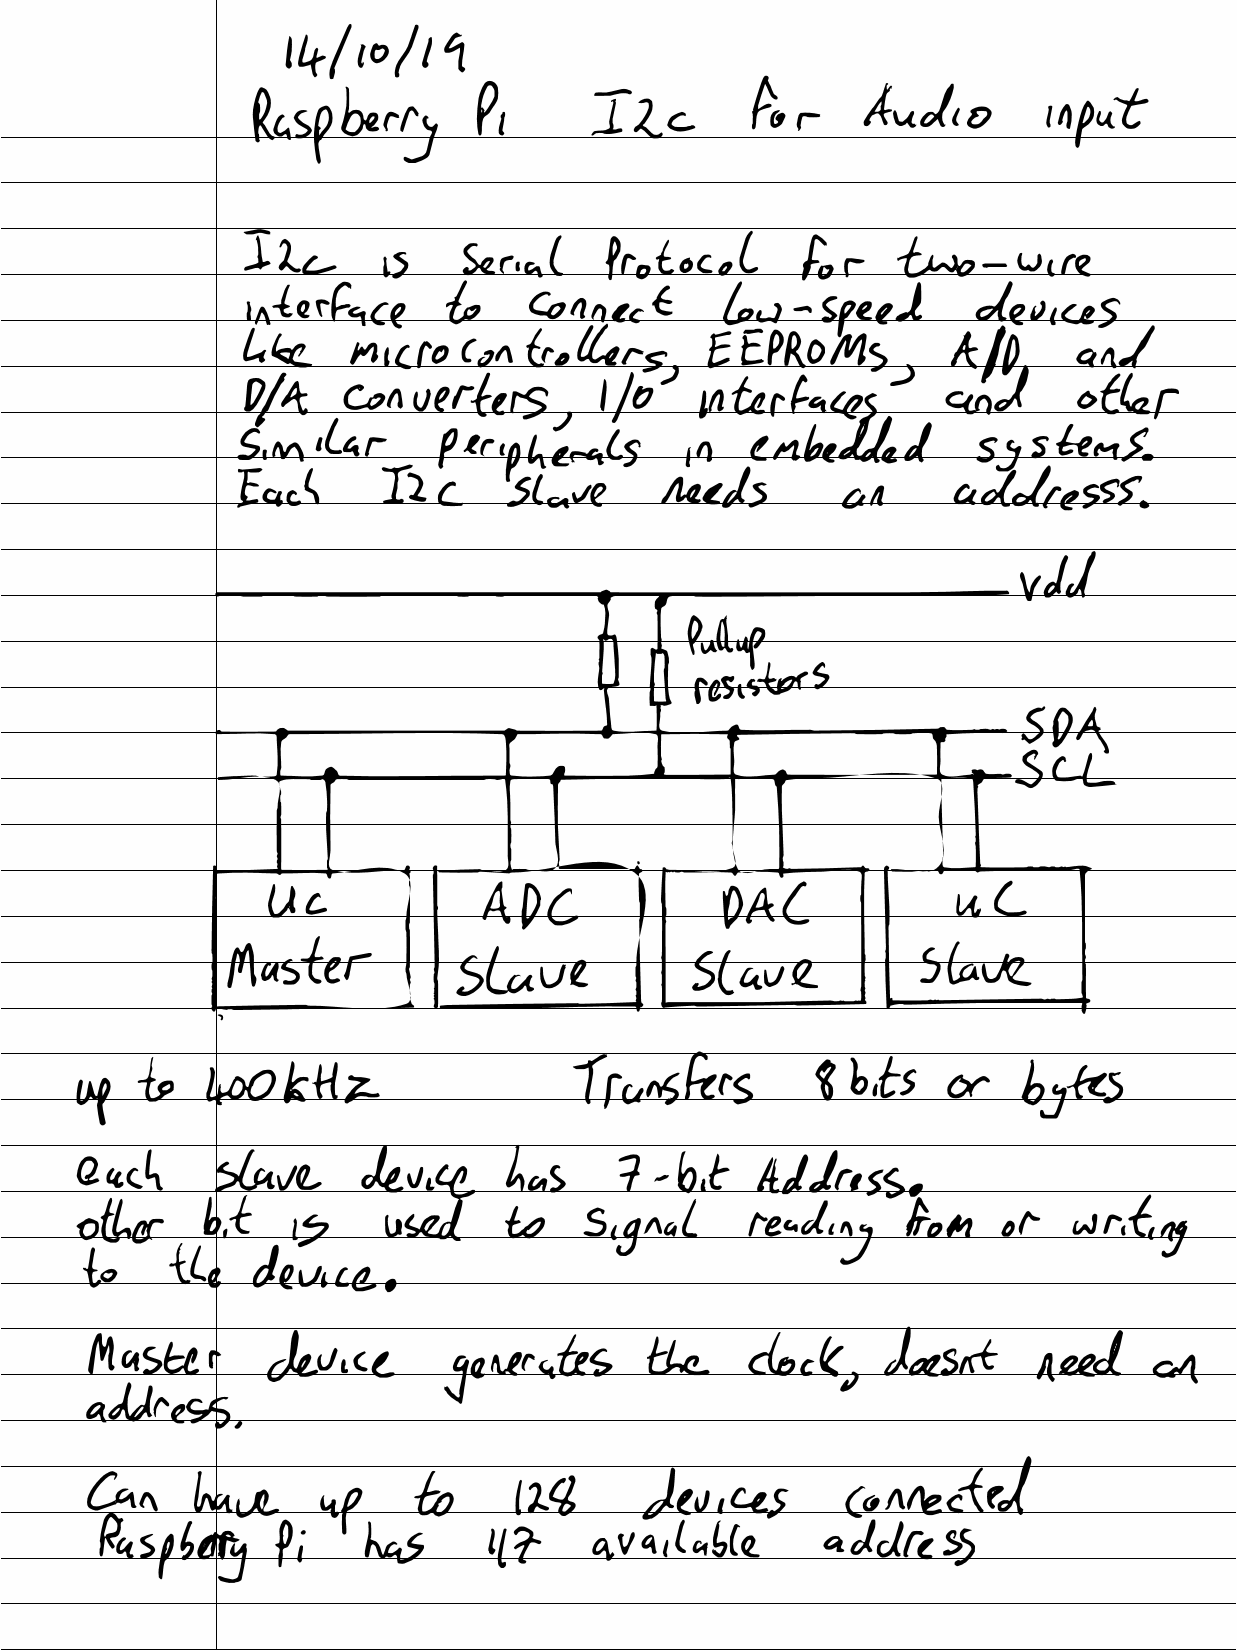 14/10/19
Raspberry Pi I2c For Audio input
I2c is Serial Protocol for two-wire
interface to connect low-speed devices
like microcontrollers, EEPROMs, A/D, and
D/A converters, I/O interfaces and other
similar peripherals in embedded systems.
Each I2C slave needs an addresss.
Vdd
Pullup
resistors
SDA
SCL
uc ADC DAC uC
Master Slave Slave Slave
up to 400kHz Transfers 8 bits or bytes
each slave device has 7-bit Address.
other bit is used to signal reading from or writing
to the device.
Master device generates the clock, doesnt need an
address.
Can have up to 128 devices connected
Raspberry Pi has 117 available address